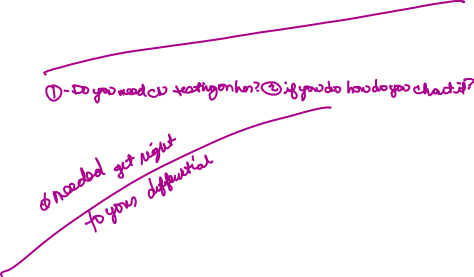 ① - Do you need testing on her? ② if you do how do you chart it?
needed get right
to your differential